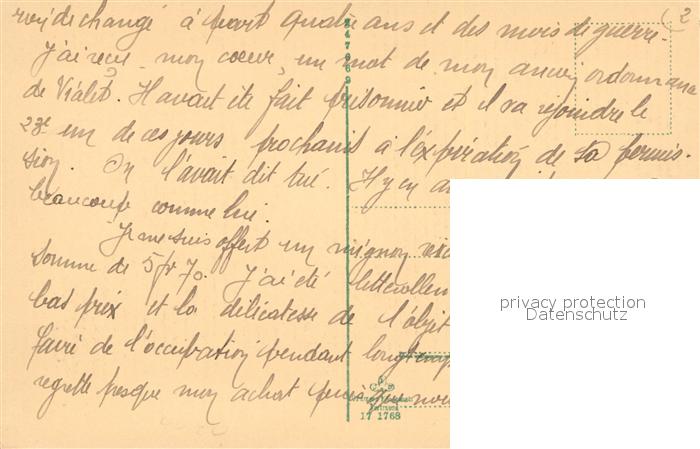 (2
de changé à part quatre ans et des mois de guerre.
J'ai reçu, mon coeur, un mot de mon ancien ordonnance
de Vialet. Il avait été fait prisonnier et il va rejoindre le
23e un de ces jours prochains à l'expiration de sa permis-
sion. On l'avait dit tué. Il y en a
beaucoup comme lui.
Je me suis offert un mignon
somme de 5fr 70. J'ai été littérallem
bas prix et la délicatesse de l'objet
faire de l'occupation pendant longtemps
regrette presque mon achat
17 1768
privacy protection
Datenschutz